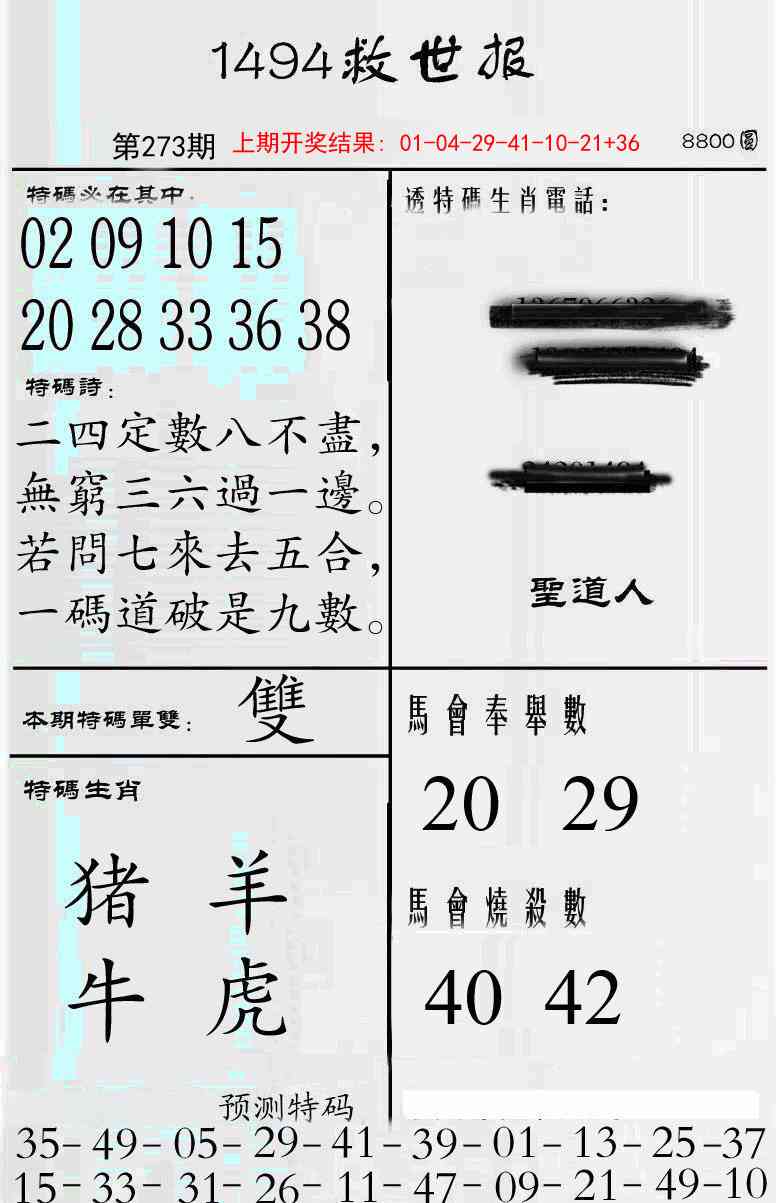 1494救世报
第273期 上期开奖结果：01-04-29-41-10-21+36 8800圓
特碼必在其中：
02 09 10 15
20 28 33 36 38
特碼詩：
二四定數八不盡，
無窮三六過一邊。
若問七來去五合，
一碼道破是九數。
透特碼生肖電話：
聖道人
本期特碼單雙：雙
特碼生肖
猪 羊
牛 虎
馬會奉舉數
20 29
馬會燒殺數
40 42
预测特码
35-49-05-29-41-39-01-13-25-37
15-33-31-26-11-47-09-21-49-10